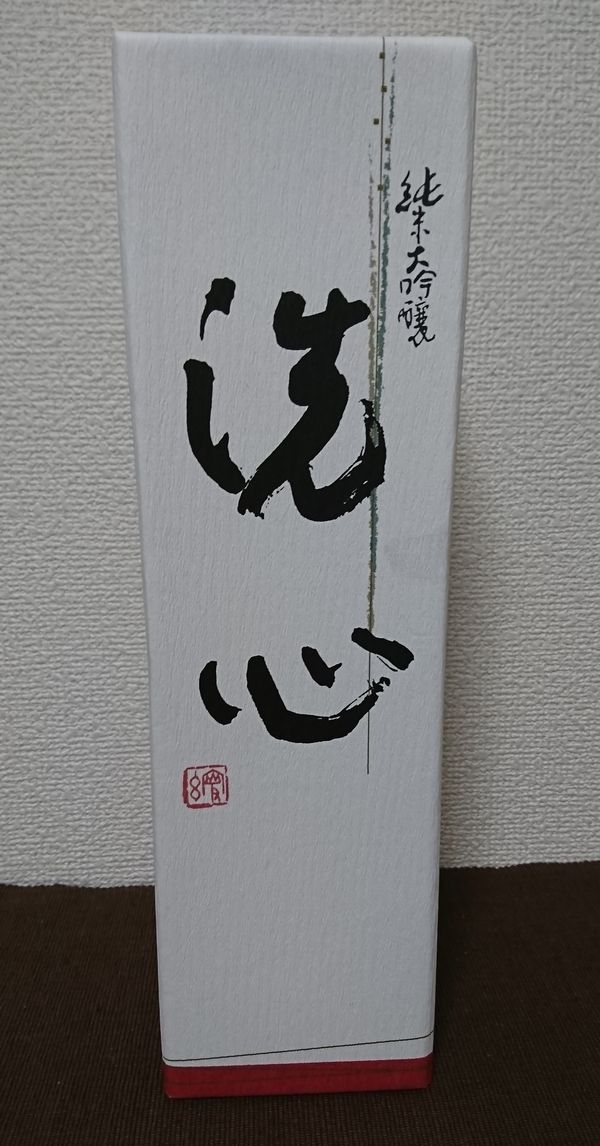 純米大吟醸
洗心